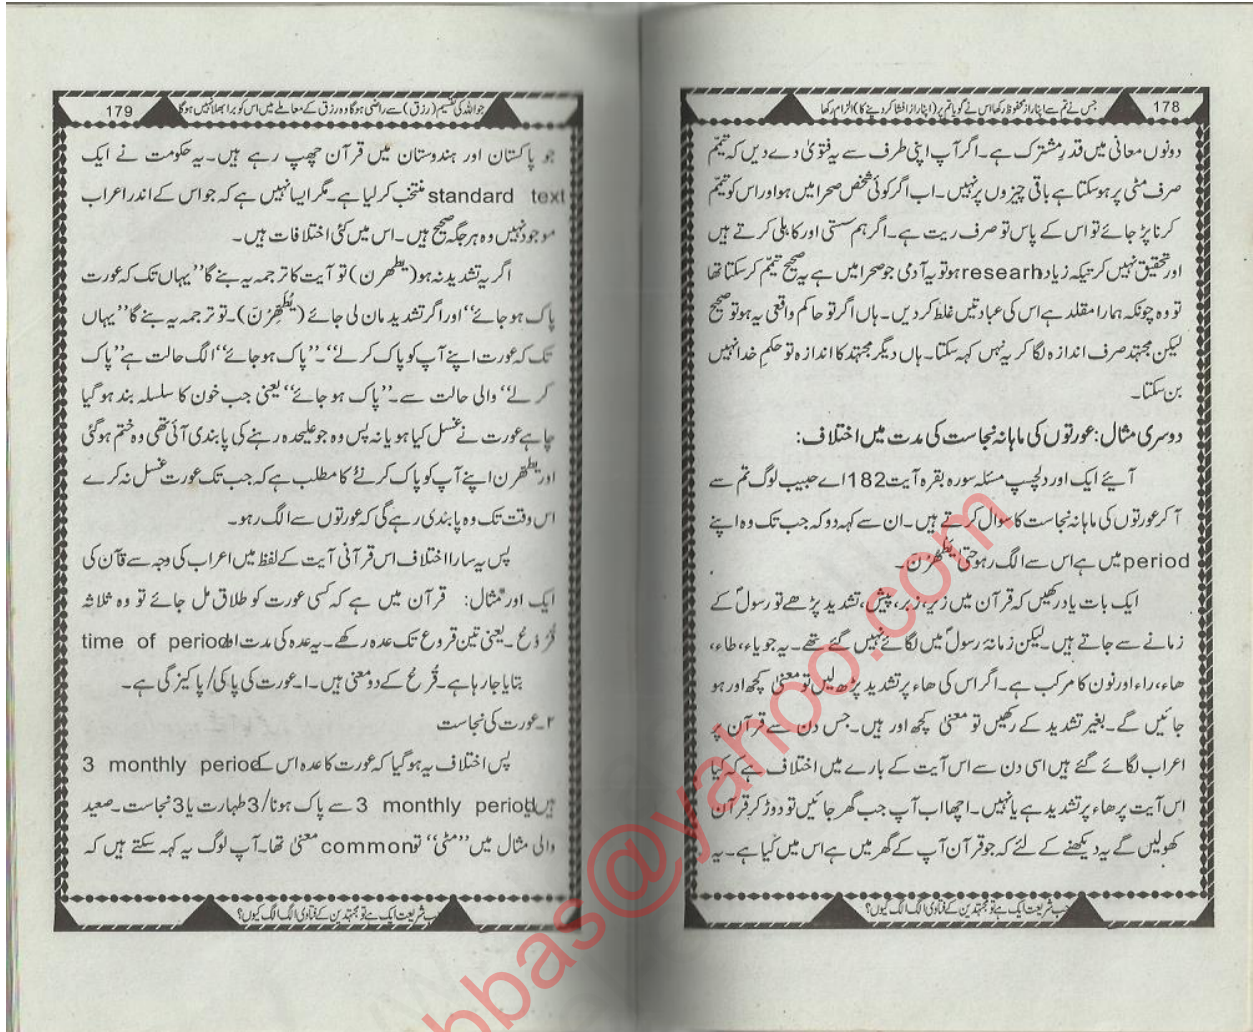 جس نے تم سے اپنا راز محفوظ رکھا اس نے گویا تم پر (اپنا راز افشا کر دینے کا) الزام رکھا 178
دونوں معانی میں قدرِ مشترک ہے۔ اگر آپ اپنی طرف سے یہ فتویٰ دے دیں کہ تیمّم
صرف مٹی پر ہو سکتا ہے باقی چیزوں پر نہیں۔ اب اگر کوئی شخص صحرا میں ہو اور اس کو تیمّم
کرنا پڑ جائے تو اس کے پاس تو صرف ریت ہے۔ اگر ہم سستی اور کاہلی کرتے ہیں
اور تحقیق نہیں کرتیکہ زیادہ researh ہو تو یہ آدمی جو صحرا میں ہے یہ صحیح تیمّم کر سکتا تھا
تو وہ چونکہ ہمارا مقلد ہے اس کی عبادتیں غلط کر دیں۔ ہاں اگر تو حاکم واقعی یہ ہو تو صحیح
لیکن مجتہد صرف اندازہ لگا کر یہ نہں کہہ سکتا۔ ہاں دیگر مجتہد کا اندازہ تو حکمِ خدا نہیں
بن سکتا۔
دوسری مثال: عورتوں کی ماہانہ نجاست کی مدت میں اختلاف:
آیئے ایک اور دلچسپ مسئلہ سورہ بقرہ آیت 182 اے حبیب لوگ تم سے
آ کر عورتوں کی ماہانہ نجاست کا سوال کرتے ہیں۔ ان سے کہہ دو کہ جب تک وہ اپنے
period میں ہے اس سے الگ رہو حتیٰ یَطْھُرْنَ۔
ایک بات یاد رکھیں کہ قرآن میں زیر، زبر، پیش، تشدید پڑھے تو رسولؐ کے
زمانے سے جاتے ہیں۔ لیکن زمانۂ رسولؐ میں لگائے نہیں گئے تھے۔ یہ جو یاء، طاء،
ھاء، راء اور نون کا مرکب ہے۔ اگر اس کی ھاء پر تشدید پڑھ لیں تو معنیٰ کچھ اور ہو
جائیں گے۔ بغیر تشدید کے رکھیں تو معنیٰ کچھ اور ہیں۔ جس دن سے قرآن پر
اعراب لگائے گئے ہیں اسی دن سے اس آیت کے بارے میں اختلاف ہے کہ کیا
اس آیت پر ھاء پر تشدید ہے یا نہیں۔ اچھا اب آپ جب گھر جائیں تو دوڑ کر قرآن
کھولیں گے یہ دیکھنے کے لئے کہ جو قرآن آپ کے گھر میں ہے اس میں کیا ہے۔ یہ
جب شریعت ایک ہے تو مجتہدین کے فتاویٰ الگ الگ کیوں؟
جو اللہ کی تقسیم (رزق) سے راضی ہوگا وہ رزق کے معاملے میں اس کو برا بھلا نہیں ہوگا 179
جو پاکستان اور ہندوستان میں قرآن چھپ رہے ہیں۔ یہ حکومت نے ایک
standard text منتخب کر لیا ہے۔ مگر ایسا نہیں ہے کہ جو اس کے اندر اعراب
موجود نہیں وہ ہر جگہ صحیح ہیں۔ اس میں کئی اختلافات ہیں۔
اگر یہ تشدید نہ ہو (یطھرن) تو آیت کا ترجمہ یہ بنے گا ”یہاں تک کہ عورت
پاک ہو جائے“ اور اگر تشدید مان لی جائے (یَطَّھِرْنَ)۔ تو ترجمہ یہ بنے گا ”یہاں
تک کہ عورت اپنے آپ کو پاک کر لے“۔ ”پاک ہو جائے“ الگ حالت ہے ”پاک
کر لے“ والی حالت سے۔ ”پاک ہو جائے“ یعنی جب خون کا سلسلہ بند ہو گیا
چاہے عورت نے غسل کیا ہو یا نہ پس وہ جو علیحدہ رہنے کی پابندی آئی تھی وہ ختم ہوگئی
اور یطّھرن اپنے آپ کو پاک کرنے کا مطلب ہے کہ جب تک عورت غسل نہ کرے
اس وقت تک وہ پابندی رہے گی کہ عورتوں سے الگ رہو۔
پس یہ سارا اختلاف اس قرآنی آیت کے لفظ میں اعراب کی وجہ سے قآن کی
ایک اور مثال: قرآن میں ہے کہ کسی عورت کو طلاق مل جائے تو وہ ثلاثہ
قُرُوْع۔ یعنی تین قروع تک عدہ رکھے۔ یہ عدہ کی مدت اور time of period
بتایا جا رہا ہے۔ قُرع کے دو معنی ہیں۔ ۱۔ عورت کی پاکی/پاکیزگی ہے۔
۲۔ عورت کی نجاست
پس اختلاف یہ ہو گیا کہ عورت کا عدہ اس کے 3 monthly period
ہیں یا 3 monthly period سے پاک ہونا/3 طہارت یا 3 نجاست۔ صعید
والی مثال میں ”مٹی“ تو common معنیٰ تھا۔ آپ لوگ یہ کہہ سکتے ہیں کہ
جب شریعت ایک ہے تو مجتہدین کے فتاویٰ الگ الگ کیوں؟
bbas@yahoo.com